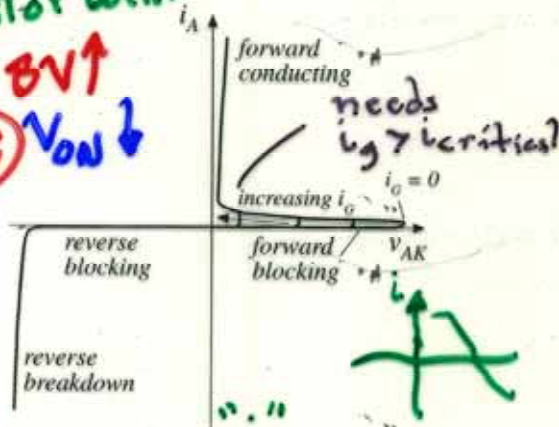 BV↑
V_ON ↓
i_A
forward
conducting
needs
i_g > i critical
increasing i_G
i_G = 0
reverse
blocking
forward
blocking
v_AK
reverse
breakdown
i